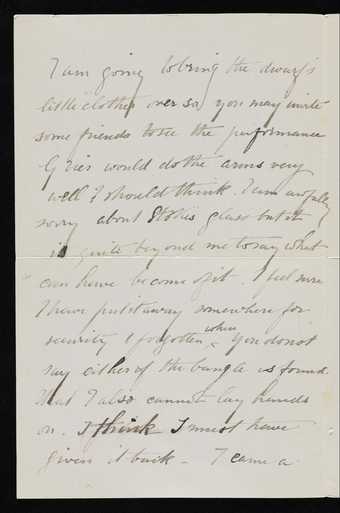 I am going to bring the dwarf's
little clothes over so you may invite
some friends to see the performance
would do the arms very
well I should think. I am awfully
sorry about Stokes glass but it
is quite beyond me to say what
can have become of it. I feel sure
I have put it away somewhere for
security & forgotten where. You do not
say either if the bangle is found.
that I also cannot lay hands
on. I think I must have
given it back - I came a